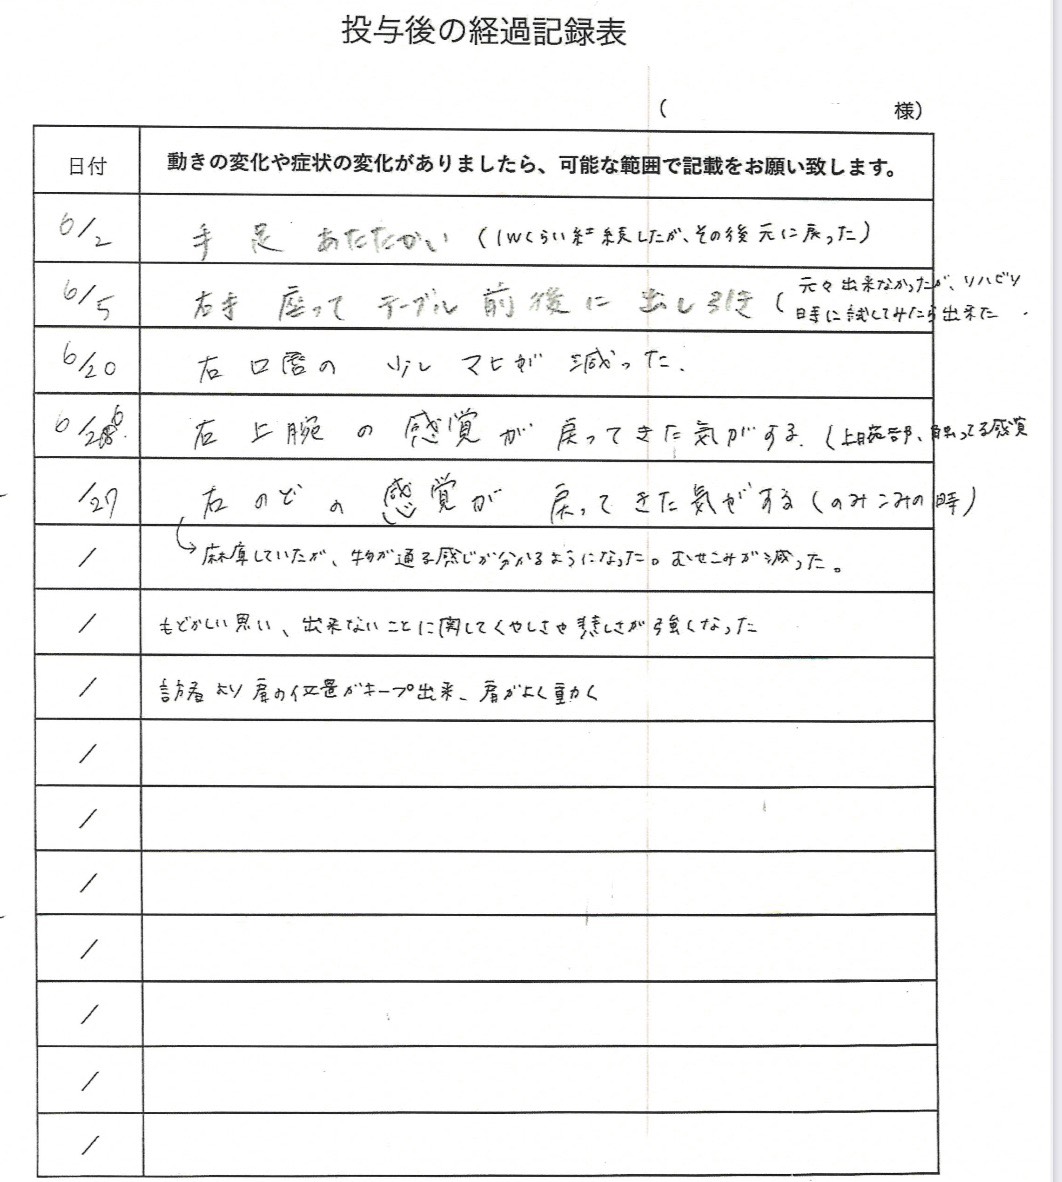 投与後の経過記録表
( 様)
日付 動きの変化や症状の変化がありましたら、可能な範囲で記載をお願い致します。
6/2 手足 あたたかい (1Wくらい継続したが、その後元に戻った)
6/5 右手 座って テーブル 前後に 出し引き (元々出来なかったが、リハビリ
時に試してみたら出来た
6/20 右口唇の 少し マヒが 減った.
6/26 右上腕の感覚が戻ってきた気がする. (上腕部、触ってる感覚
/27 右のどの感覚が 戻ってきた気がする (のみこみの時)
/ 麻痺していたが、物が通る感じが分かるようになった。むせこみが減った。
/ もどかしい思い、出来ないことに関してくやしさや悲しさが強くなった
/ 訪看より 肩の位置がキープ出来、肩がよく動く
/
/
/
/
/
/
/